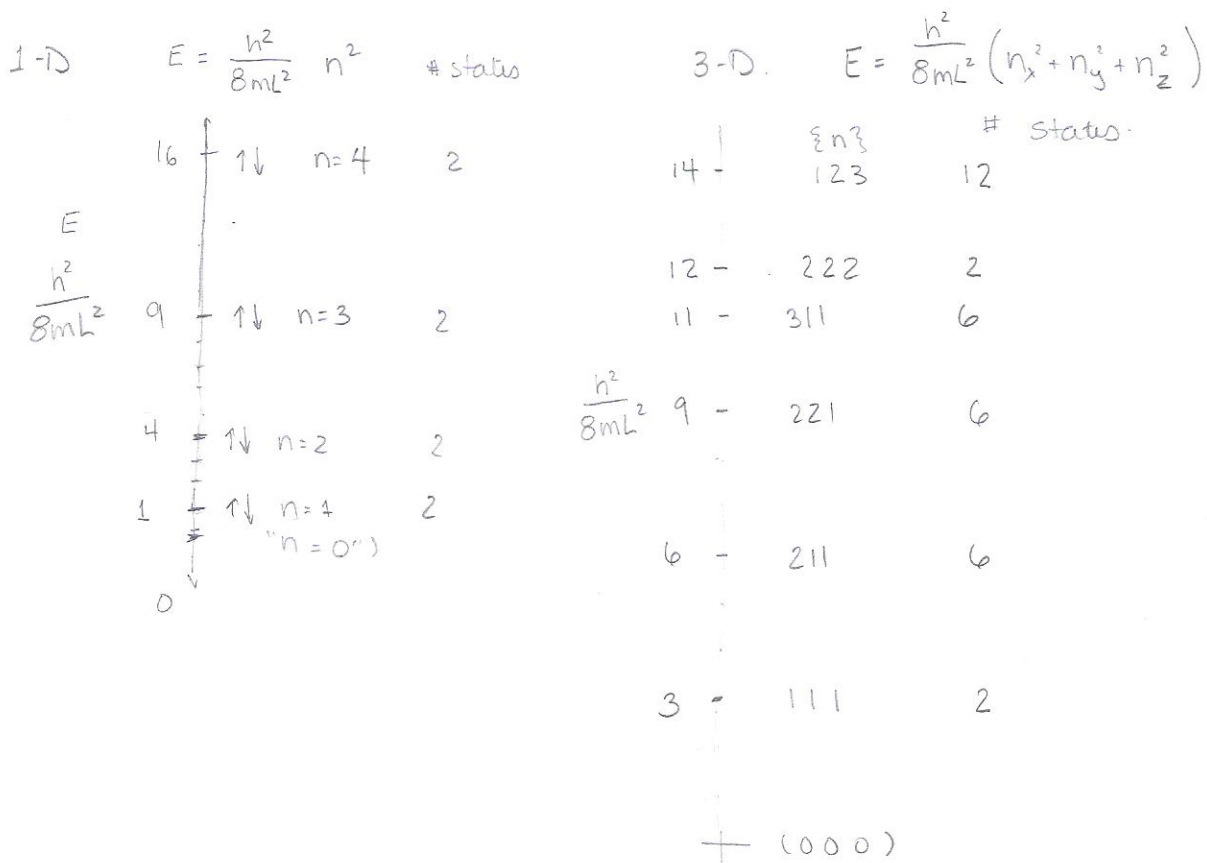 1-D E = h²/8mL² n² # states
16 ↑↓ n=4 2
E
h²/8mL² 9 ↑↓ n=3 2
4 ↑↓ n=2 2
1 ↑↓ n=1 2
"n=0")
0
3-D. E = h²/8mL² (nₓ² + n_y² + n_z²)
{n} # states.
14 - 123 12
12 - 222 2
11 - 311 6
h²/8mL² 9 - 221 6
6 - 211 6
3 - 111 2
(000)